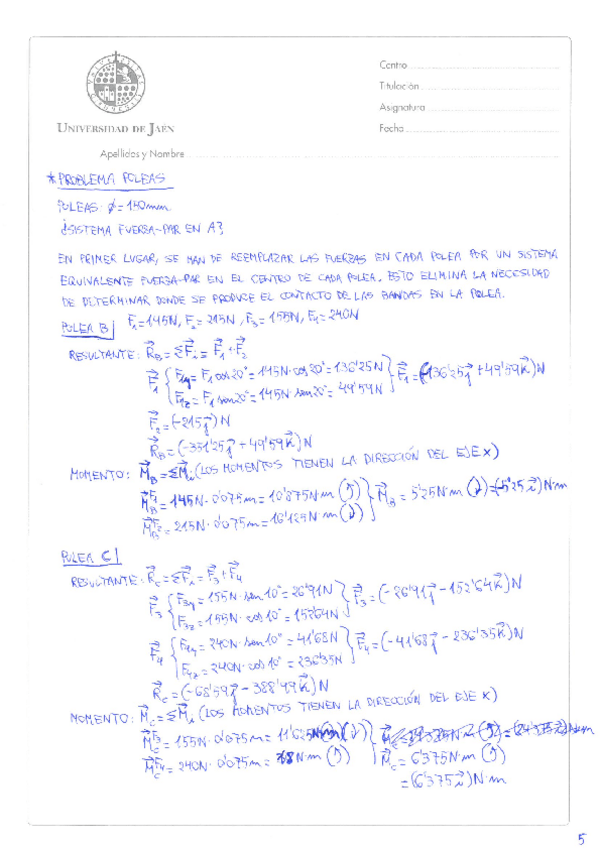 Centro
Titulación
Asignatura
Fecha
UNIVERSIDAD DE JAÉN
Apellidos y Nombre
* PROBLEMA POLEAS
POLEAS: φ=150mm
¿SISTEMA FUERZA-PAR EN A?
EN PRIMER LUGAR, SE HAN DE REEMPLAZAR LAS FUERZAS EN CADA POLEA POR UN SISTEMA
EQUIVALENTE FUERZA-PAR EN EL CENTRO DE CADA POLEA. ESTO ELIMINA LA NECESIDAD
DE DETERMINAR DONDE SE PRODUCE EL CONTACTO DE LAS BANDAS EN LA POLEA.
POLEA B| F₁=145N, F₂=215N, F₃=155N, F₄=240N
RESULTANTE: R⃗_B=ΣF⃗ᵢ=F⃗₁+F⃗₂
F⃗₁ { F₁y=F₁cos20°=145N·cos20°=136'25N
F₁z=F₁sen20°=145N·sen20°=49'59N } F⃗₁=(-136'25j⃗+49'59k⃗)N
F⃗₂=(-215j⃗)N
R⃗_B=(-351'25j⃗+49'59k⃗)N
MOMENTO: M⃗_B=ΣM⃗ᵢ (LOS MOMENTOS TIENEN LA DIRECCIÓN DEL EJE X)
M⃗_B^F₁=145N·0'075m=10'875N·m (↺)
M⃗_B^F₂=215N·0'075m=16'125N·m (↻) } M⃗_B=5'25N·m (↻)=(-5'25i⃗)N·m
POLEA C|
RESULTANTE: R⃗_C=ΣF⃗ᵢ=F⃗₃+F⃗₄
F⃗₃ { F₃y=155N·sen10°=26'91N
F₃z=155N·cos10°=152'64N } F⃗₃=(-26'91j⃗-152'64k⃗)N
F⃗₄ { F₄y=240N·sen10°=41'68N
F₄z=240N·cos10°=236'35N } F⃗₄=(-41'68j⃗-236'35k⃗)N
R⃗_C=(-68'59j⃗-388'99k⃗)N
MOMENTO: M⃗_C=ΣM⃗ᵢ (LOS MOMENTOS TIENEN LA DIRECCIÓN DEL EJE X)
M⃗_C^F₃=155N·0'075m=11'625N·m (↻)
M⃗_C^F₄=240N·0'075m=18N·m (↺) } M⃗_C=6'375N·m (↺)
=(6'375i⃗)N·m
5